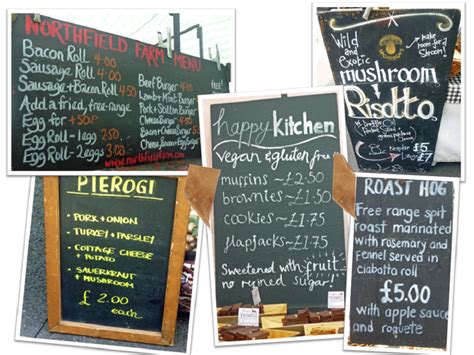 NORTHFIELD FARM MENU
Bacon Roll 4.00
Sausage Roll 4.00
Sausage + Bacon Roll 4.50
Add a fried, free-range
Egg for +50p
Egg Roll - 1egg 2.50
Egg Roll - 2eggs 3.00
Beef Burger
Lamb + Mint Burger
Pork + Stilton Burger
Cheese Burger
www.northfieldfarm.com
happy Kitchen
Vegan & gluten free
muffins ~ £2.50
brownies ~ £2.50
cookies ~ £1.75
flapjacks ~ £1.75
Sweetened with fruit
no refined sugar!
Wild
and
exotic
make
room for a
Shroom!
mushroom
Risotto
£5
£7
PIEROGI
PORK + ONION
TURKEY + PARSLEY
COTTAGE CHEESE
+ POTATO
SAUERKRAUT
+ MUSHROOM
£ 2.00
each
ROAST HOG
Free range spit
roast marinated
with rosemary and
fennel served in
ciabatta roll
£5.00
with apple sauce
and roquete